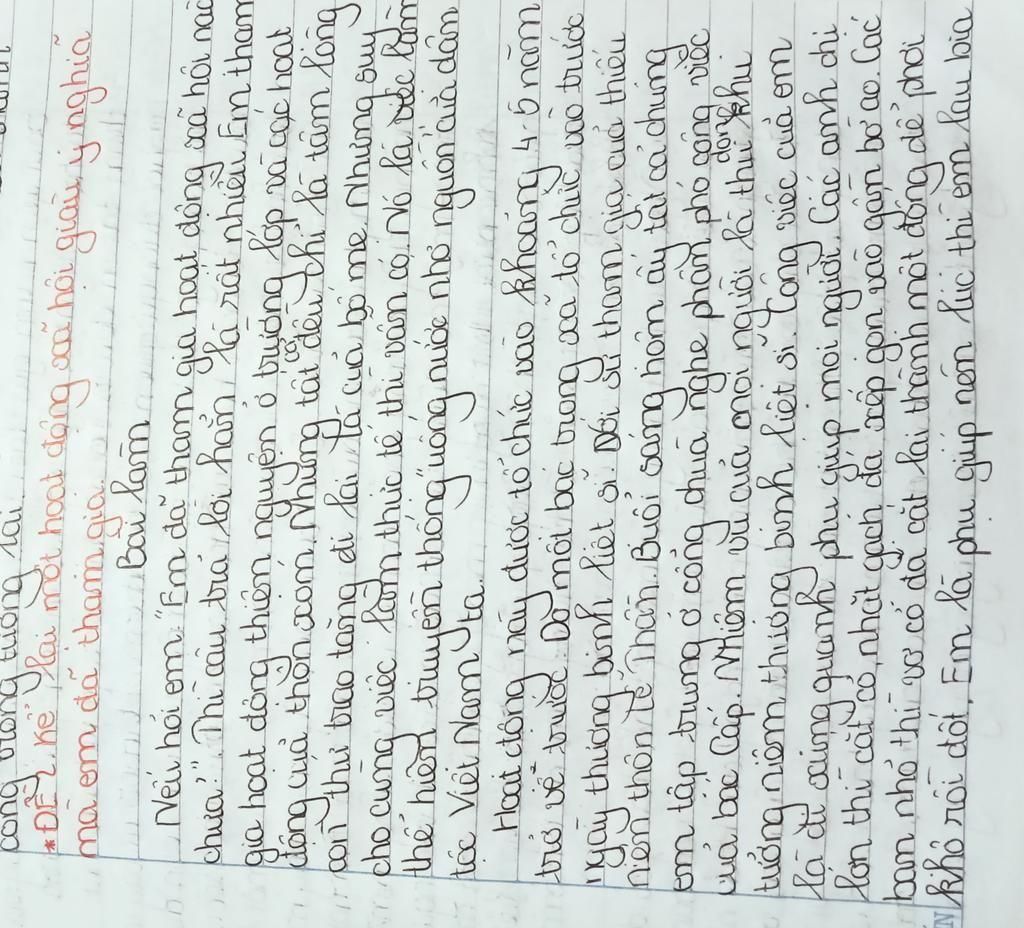 cộng đồng tương lai.
*ĐỀ 2: Kể lại một hoạt động xã hội giàu ý nghĩa
mà em đã tham gia.
Bài làm
Nếu hỏi em: "Em đã tham gia hoạt động xã hội nào
chưa?" Thì câu trả lời hẳn là rất nhiều. Em tham
gia hoạt động thiện nguyện ở trường, lớp và các hoạt
động của thôn, xóm. Nhưng tất cả đều chỉ là tấm lòng
còn thứ trao tặng đi lại là của bố mẹ. Nhưng suy
cho cùng việc làm thực tế thì vẫn có. Nó là việc làm
thể hiện truyền thống "uống nước nhớ nguồn" của dân
tộc Việt Nam ta.
Hoạt động này được tổ chức vào khoảng 4-5 năm
trở về trước. Do một bác trong xã tổ chức vào trước
ngày thương binh liệt sĩ. Đội sự tham gia của thiếu
niên thôn Tề Thân. Buổi sáng hôm ấy tất cả chúng
em tập trung ở cổng chùa nghe phân phó công việc
của bác Cấp. Nhiệm vụ của mọi người là thui dọn khu
tưởng niệm thương binh liệt sĩ. Công việc của em
là đi xung quanh phụ giúp mọi người. Các anh chị
lớn thì cắt cỏ, nhặt gạch đá xếp gọn vào gần bờ ao. Các
bạn nhỏ thì vơ cỏ đã cắt lại thành một đống để phơi
khô rồi đốt. Em là phụ giúp nên lúc thì em lau bia